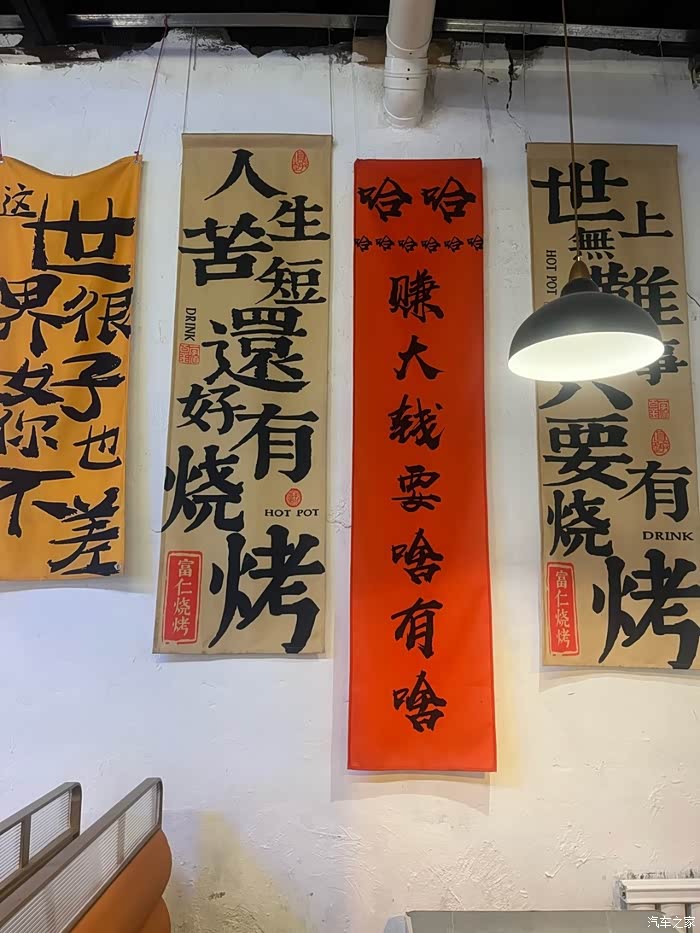 这世界很好你也不差
人生苦短
還好有烧烤
DRINK
HOT POT
富仁烧烤
哈哈
哈哈哈哈哈哈
赚大钱要啥有啥
世上無難事
只要有烧烤
HOT POT
DRINK
富仁烧烤
汽车之家